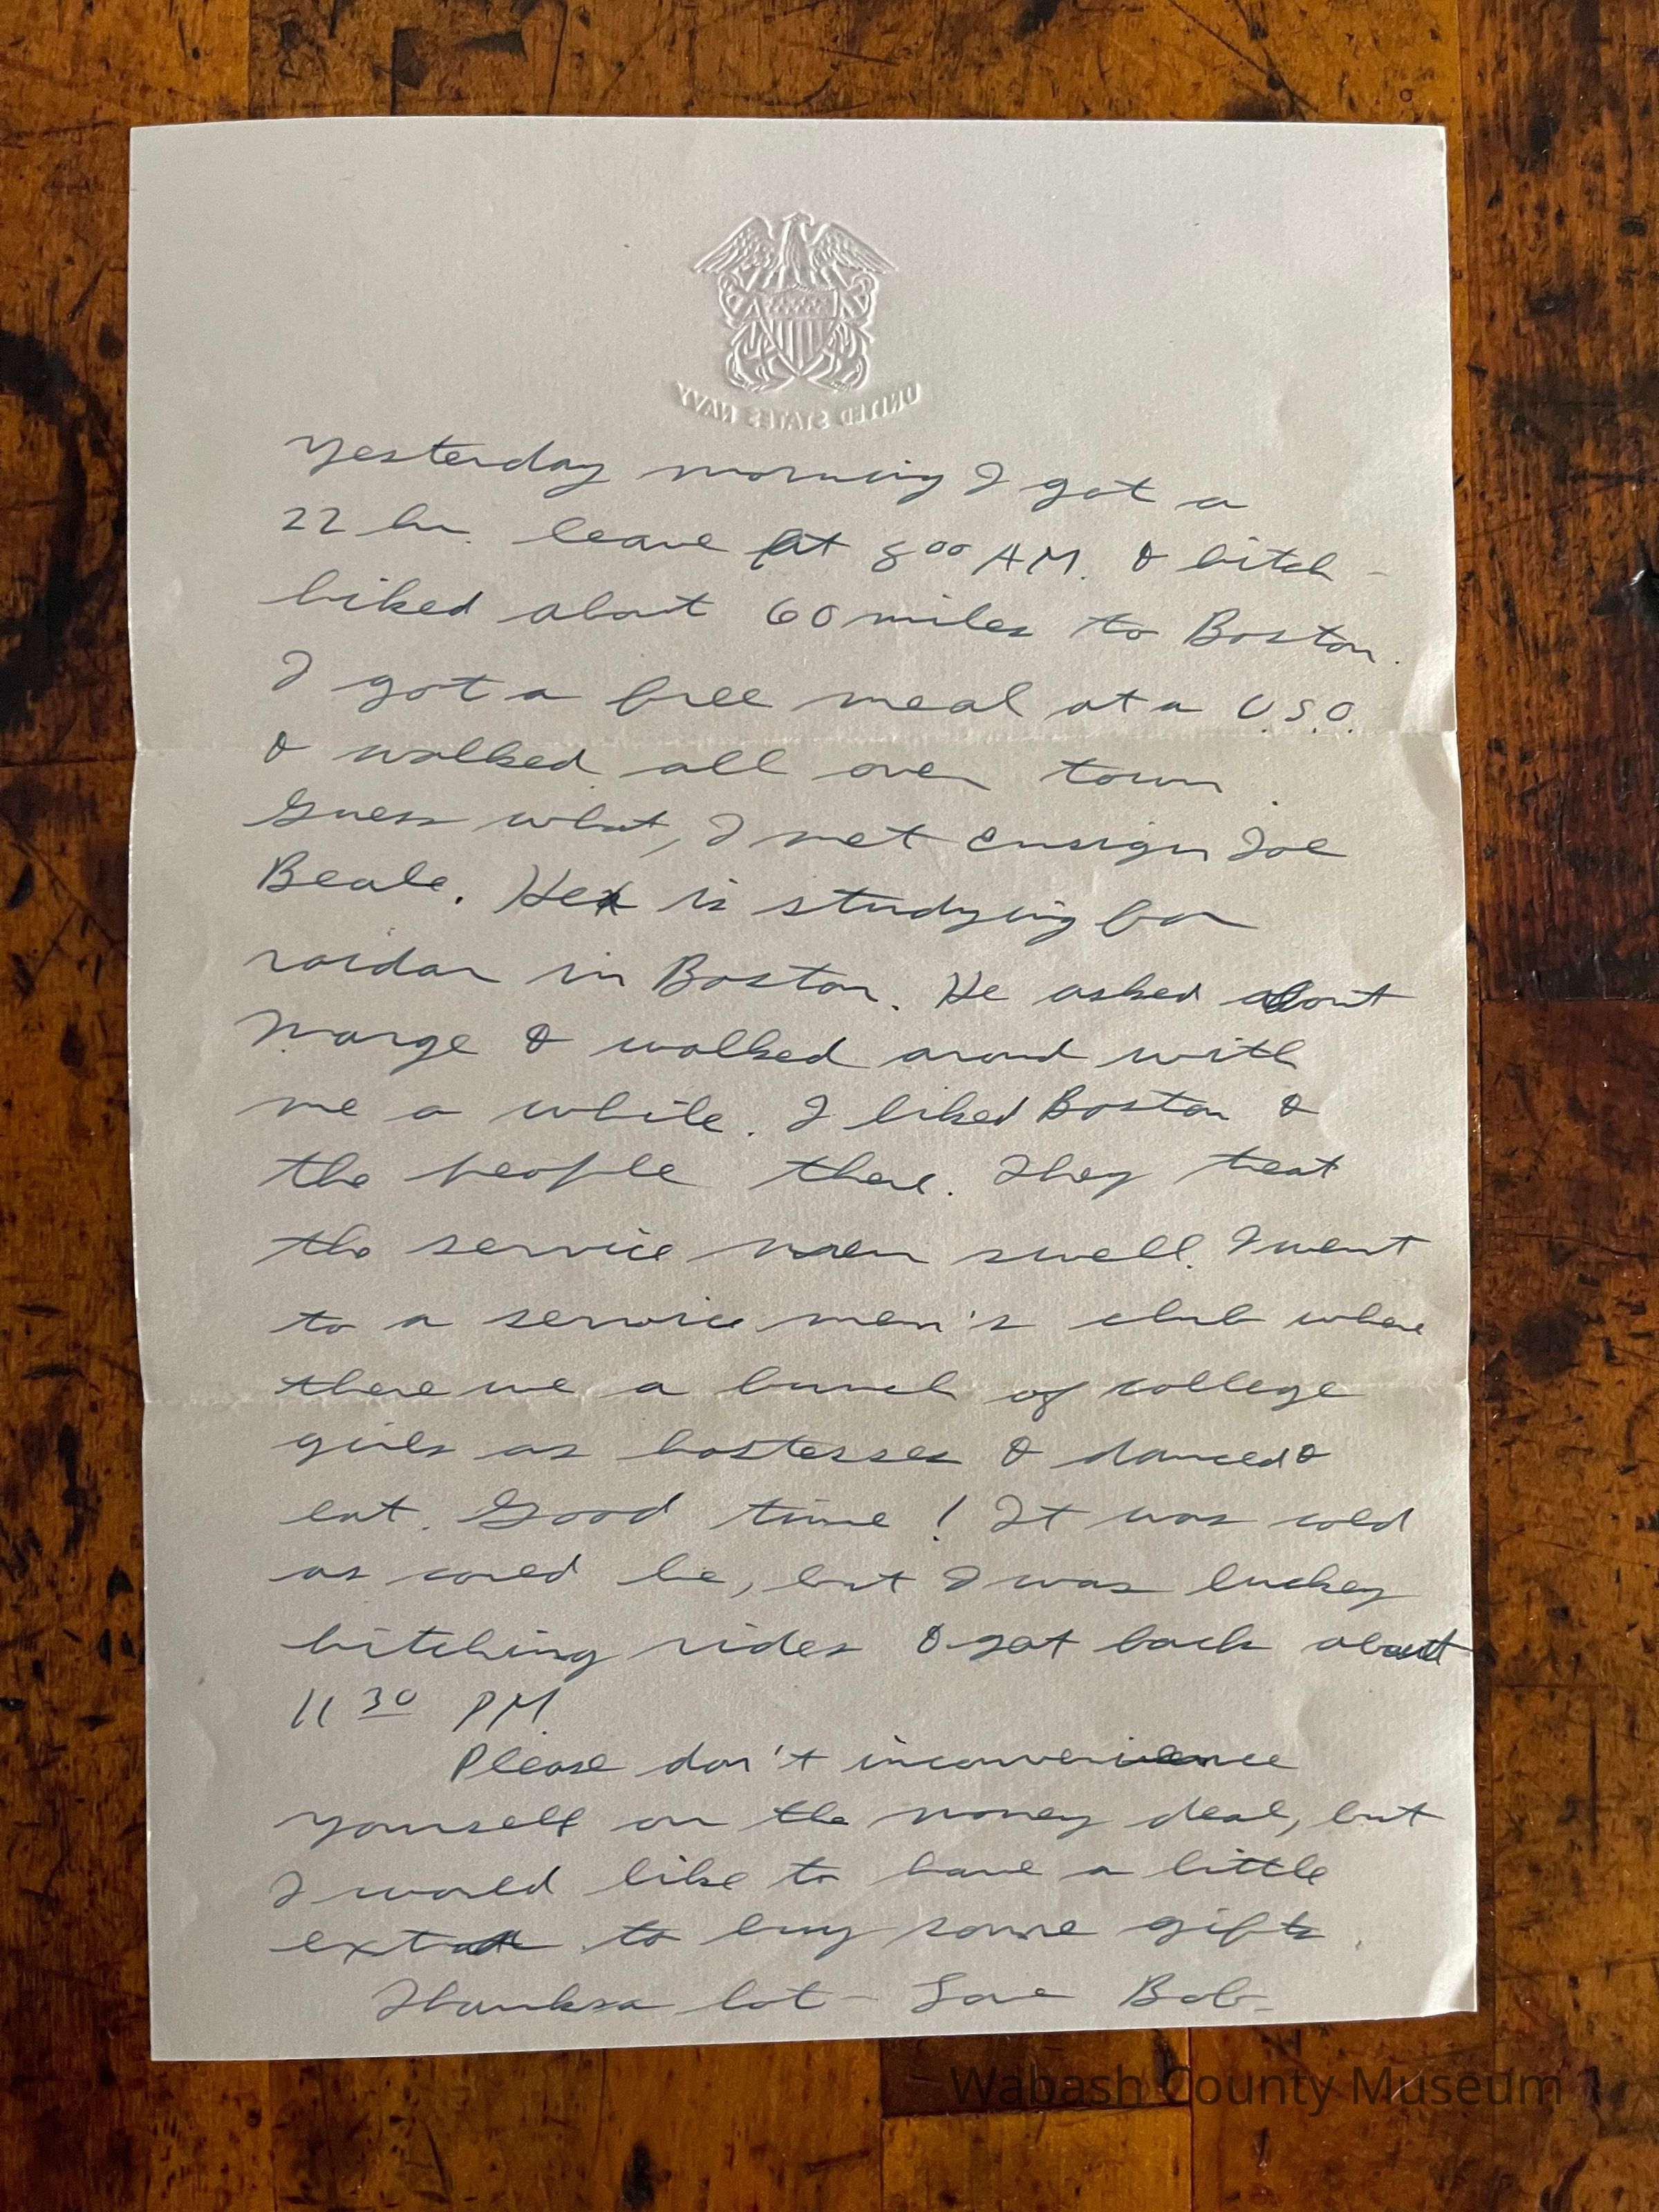 UNITED STATES NAVY
Yesterday morning I got a
22 hr. leave at 8 00 AM. & hitch-
hiked about 60 miles to Boston.
I got a free meal at a U.S.O.
& walked all over town.
Guess what, I met Ensign Joe
Beale. He is studying for
raidar in Boston. He asked about
Marge & walked aroud with
me a while. I liked Boston &
the people there. They treat
the service men swell. I went
to a service men's club where
there we a bunch of college
girls as hostesses & danced &
eat. Good time! It was cold
as could be, but I was luckey
hitching rides & got back about
11 30 PM.
Please don't inconvenience
yourself on the money deal, but
I would like to have a little
extra to buy some gifts.
Thanks a lot - Love Bob
Wabash County Museum